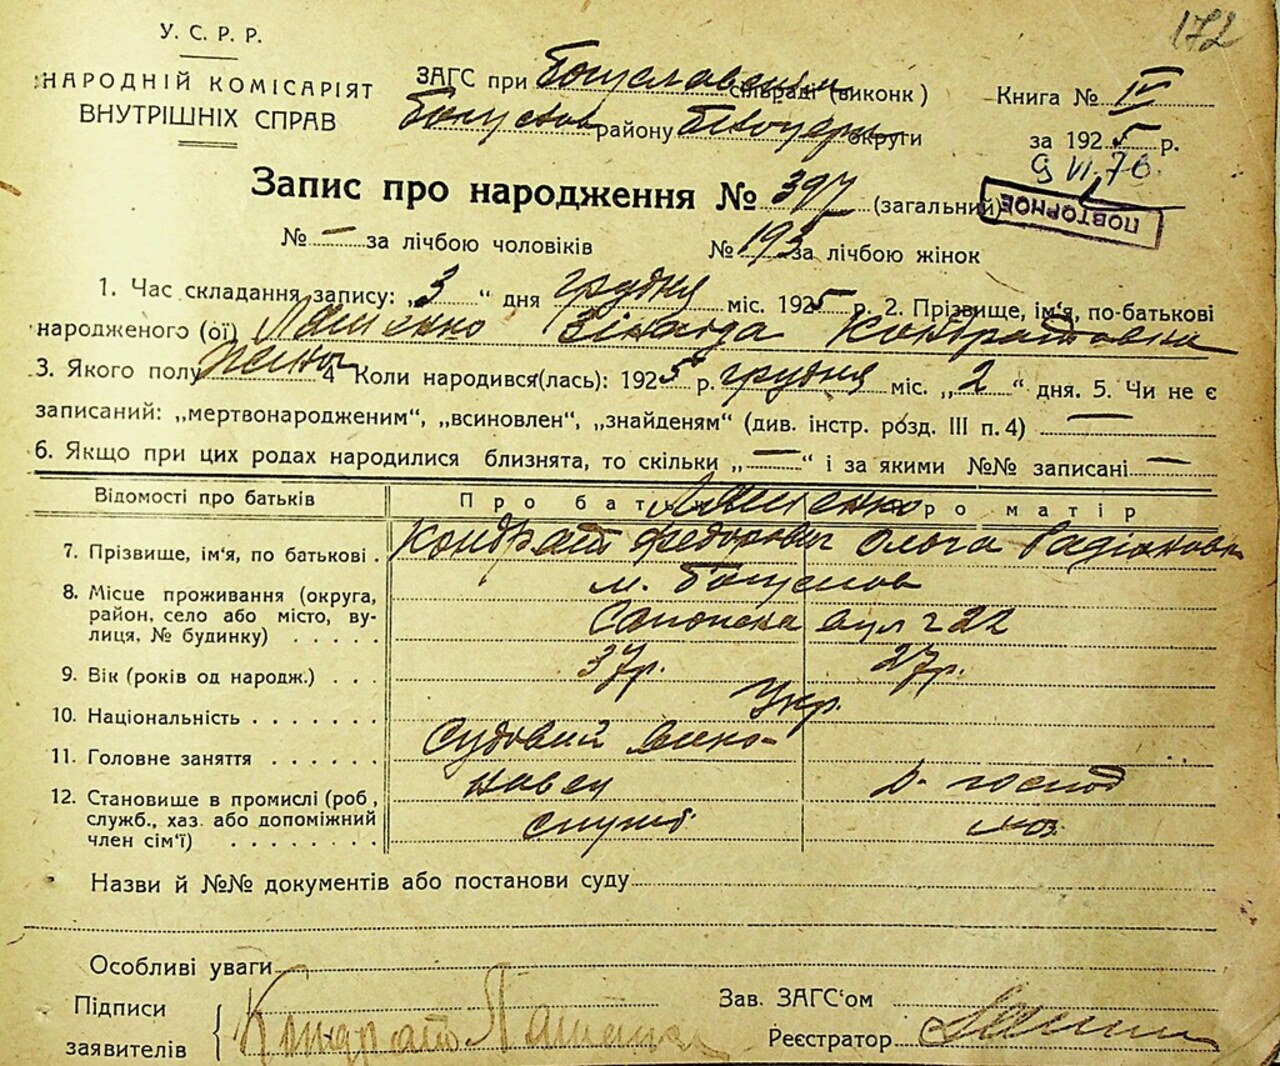 172
У. С. Р. Р.
НАРОДНІЙ КОМІСАРІЯТ
ВНУТРІШНІХ СПРАВ
ЗАГС при Богуславськім сільраді (виконк)
Богуслав району Білоцерк округи
Книга № IV
за 1925 р.
9 VI 76.
ПОВТОРНОЕ
Запис про народження № 397 (загальний)
№ — за лічбою чоловіків № 195 за лічбою жінок
1. Час складання запису: „3“ дня грудня міс. 1925 р. 2. Прізвище, ім‘я, по-батькові
народженого (ої) Лященко Зінаїда Кондратовна
3. Якого полу жіноч 4 Коли народився(лась): 1925 р. грудня міс. „2“ дня. 5. Чи не є
записаний: „мертвонародженим“, „всиновлен“, „знайденям“ (див. інстр. розд. III п. 4) —
6. Якщо при цих родах народилися близнята, то скільки „—“ і за якими №№ записані —
Відомості про батьків Про бать Про матір
Лященко
7. Прізвище, ім'я, по батькові . Кондрат Федорович Ольга Радіоновн
8. Місце проживання (округа, м. Богуслав
район, село або місто, ву-
лиця, № будинку) . . . . . вул 22
9. Вік (років од народж.) . . . 37р. 27р.
10. Національність . . . . . . . Укр.
11. Головне заняття . . . . . . Судовий вико-
навец д. господ
12. Становище в промислі (роб,
служб., хаз. або допоміжний служб.
член сім‘ї) . . . . . . . .
Назви й №№ документів або постанови суду
Особливі уваги
Підписи
заявителів Кондрат Лященко
Зав. ЗАГС‘ом
Реєстратор